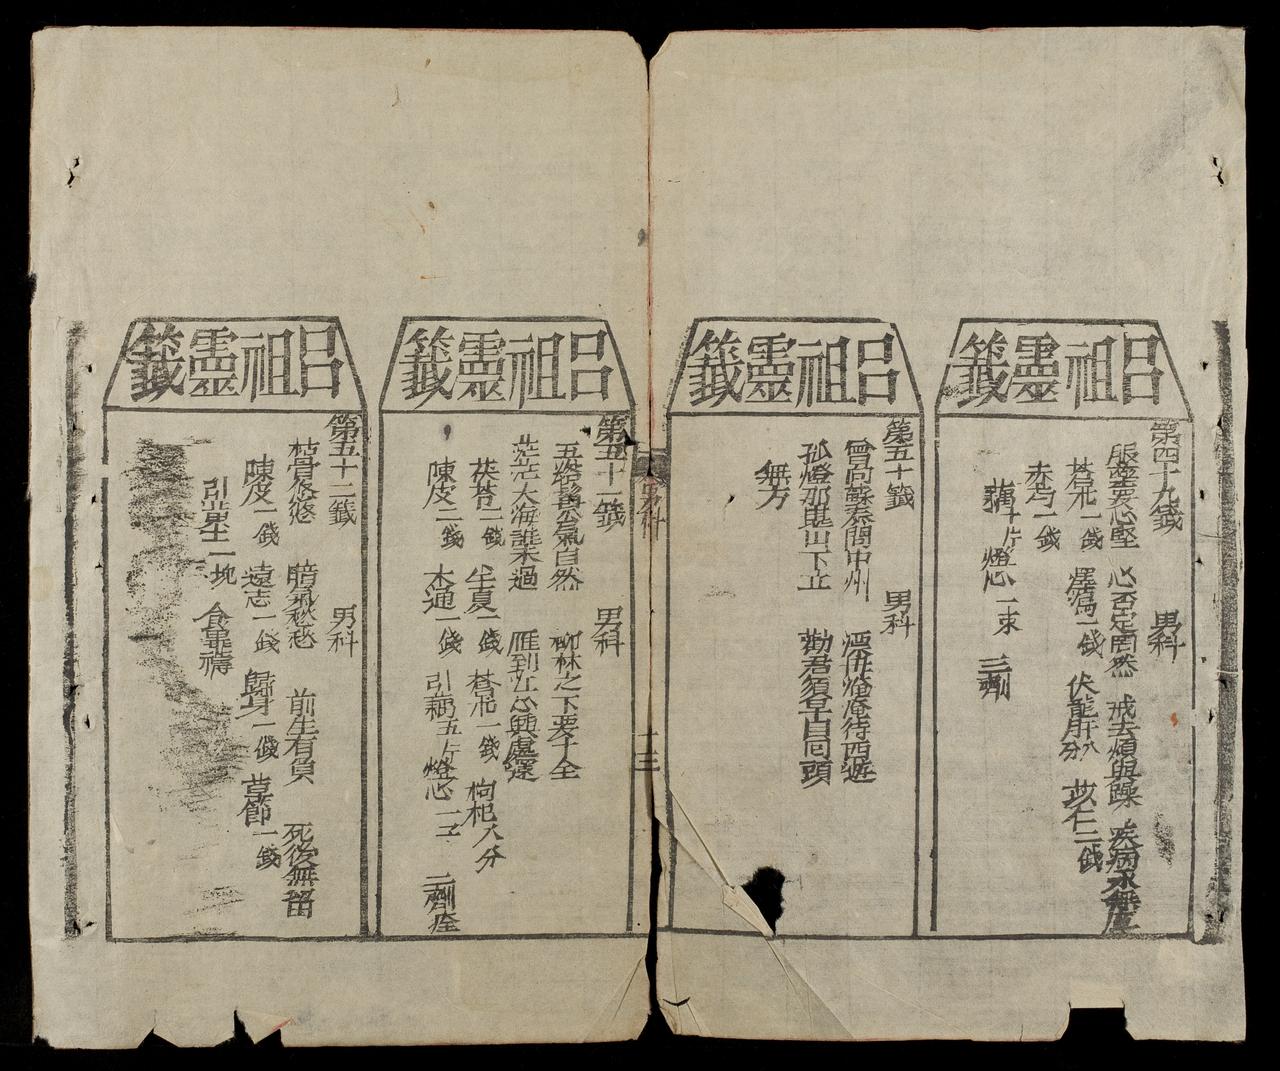 呂祖靈籤
第四十九籤 男科
服藥要心堅 心否定罔然 戒去煩與躁 疾病永無虞
蒼朮一錢 澤瀉一錢 伏龍肝八分 苡仁二錢
赤芍一錢
藕十片 燈心一束 三劑
呂祖靈籤
第五十籤 男科
曾向蘇秦問中州 淹淹待西遊
孤燈那堪山下立 勸君須早自回頭
無方
男科
十三
呂祖靈籤
第五十一籤 男科
五 鬚公氣自然 柳林之下要十全
茫茫大海誰未過 雁到江心興處還
茯苓二錢 半夏一錢 蒼朮一錢 枸杞八分
陳皮二錢 木通一錢 引藕五片 燈心 二劑痊
呂祖靈籤
第五十二籤 男科
枯骨悠悠 暗氣愁愁 前生有負 死後無留
陳皮一錢 遠志一錢 歸身一錢 草節一錢
引 一塊 食 禱